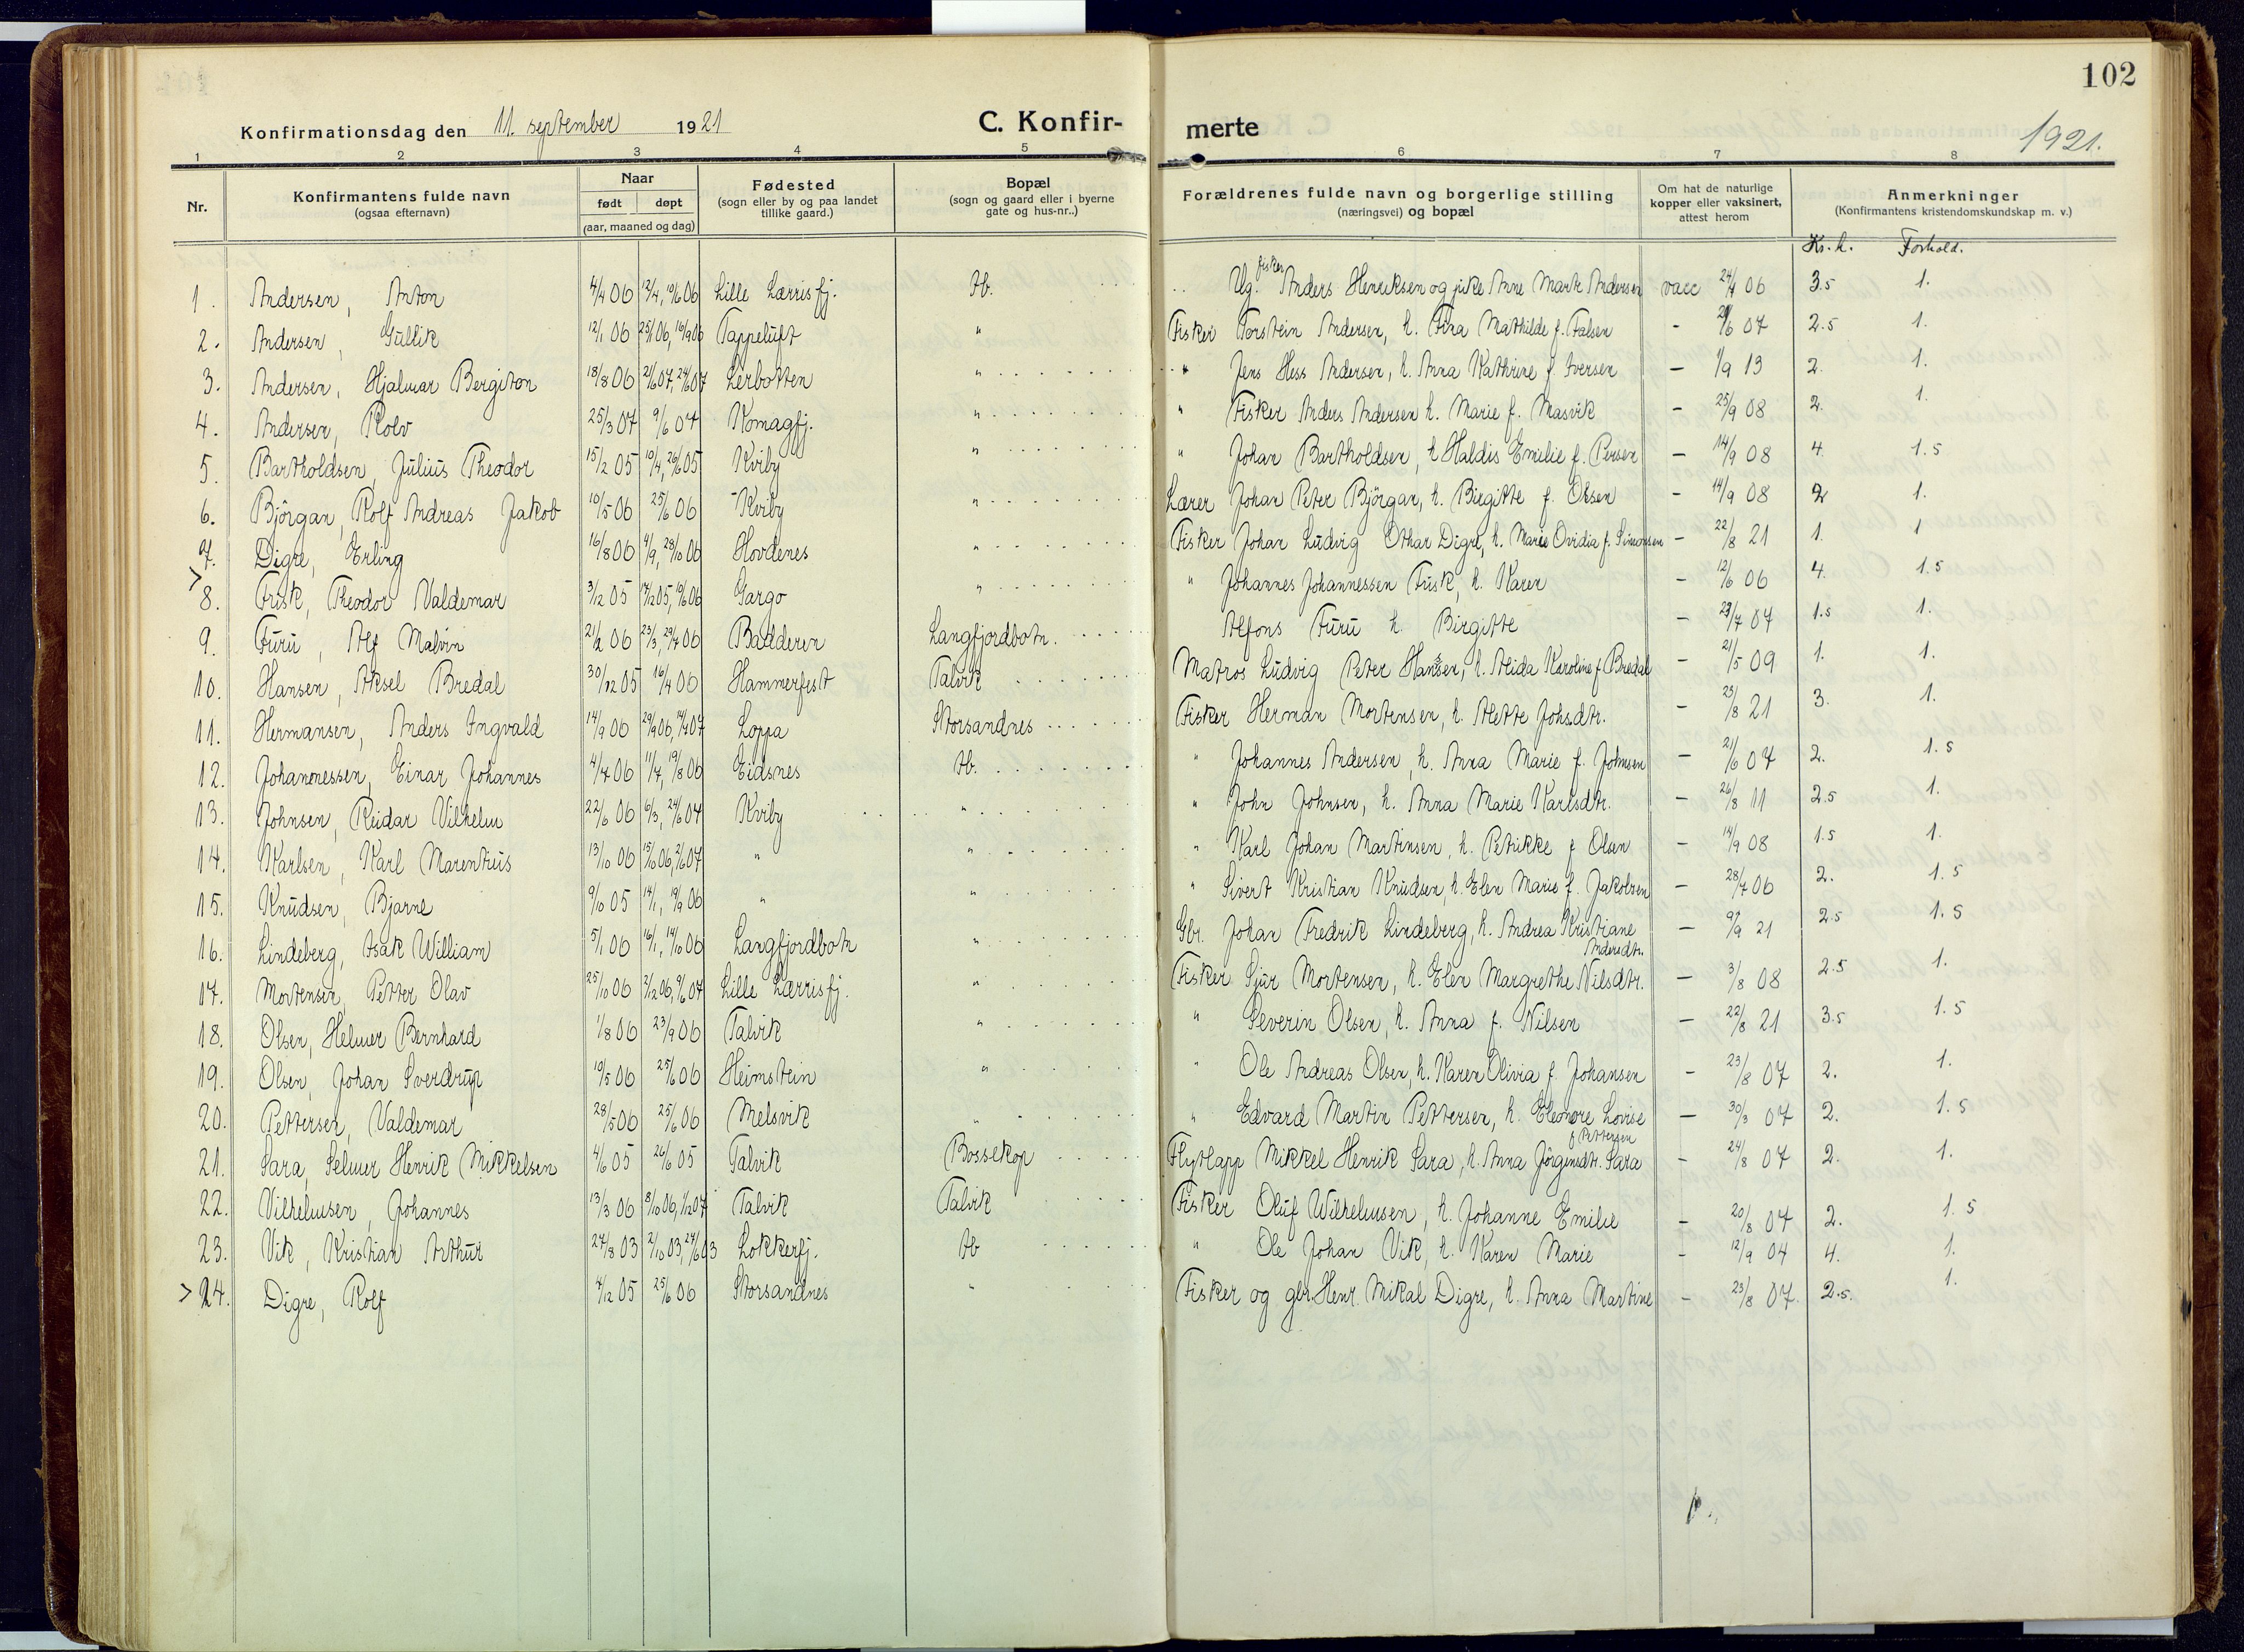 102
Konfirmationsdag den 11. september 1921 C. Konfir- merte 1921.
1 2 3 4 5 6 7 8
Nr. Konfirmantens fulde navn (ogsaa efternavn) Naar født døpt (aar, maaned og dag) Fødested (sogn eller by og paa landet tillike gaard.) Bopæl (sogn og gaard eller i byerne gate og hus-nr..) Forældrenes fulde navn og borgerlige stilling (næringsvei) og bopæl Om hat de naturlige kopper eller vaksinert, attest herom Anmerkninger (Konfirmantens kristendomskundskap m. v.)
Kr.k. Forhold.
1. Andersen, Anton 4/4 06 12/4, 10/6 06 Lille Lærrisfj. Ib. Ug. fisker Anders Henriksen og pike Anne Mark Andersen vacc 24/4 06 3.5 1.
2. Andersen, Gullik 12/1 06 25/1 06, 16/9 06 Tappeluft " Fisker Torstein Andersen, h. Fina Mathilde f. Falsen - /6 07 2.5 1.
3. Andersen, Hjalmar Bergiton 18/8 06 2/6 07, 24/6 07 Lerbotten " " Jens Hess Andersen, h. Anna Kathrine f. Iversen - 1/9 13 2. 1.
4. Andersen, Rolv 25/3 07 9/6 07 Komagfj. " " Fisker Anders Andersen h. Marie f. Masvik - 25/9 08 2. 1.
5. Bartholdsen, Julius Theodor 15/2 05 10/4, 26/6 05 Kviby " " Johan Bartholdsen, h Haldis Emilie f. Persen - 14/9 08 4. 1.5
6. Björgan, Rolf Andreas Jakob 10/5 06 25/6 06 Kviby " Lærer Johan Peter Björgan, h. Birgitte f. Olsen - 14/9 08 2 1.
7. Digre, Erling 16/8 06 4/9, 28/10 06 Hovdenes " Fisker Johan Ludvig Othar Digre, h. Marie Ovidia f. Simonsen - 22/8 21 1. 1
> 8. Frisk, Theodor Valdemar 3/12 05 17/12 05, 10/6 06 Gargo " " Johannes Johannessen Frisk, h. Karen - 12/6 06 4. 1.5
9. Furu, Alf Malvin 21/2 06 23/3, 29/7 06 Badderen Langfjordbotn. Alfons Furu h. Birgitte - 29/7 07 1.5 1.
10. Hansen, Aksel Bredal 30/12 05 16/4 06 Hammerfest Talvik Matros Ludvig Peter Hansen, h. Alida Karoline f. Bredal - 21/5 09 1. 1.
11. Hermansen, Anders Ingvald 14/9 06 29/9 06, 14/7 07 Loppa Storsandnes Fisker Herman Mortensen, h. Alette Johsdtr. - 23/8 21 3. 1.
12. Johannessen, Einar Johannes 4/7 06 11/7, 19/8 06 Eidsnes Ib. " Johannes Andersen, h. Anna Marie f. Johnsen - 21/6 07 2. 1.5
13. Johnsen, Reidar Vilhelm 22/6 06 6/3, 24/6 07 Kviby " " John Johnsen, h. Anna Marie Karlsdtr. - 26/8 11 2.5 1.
14. Karlsen, Karl Marentius 13/10 06 15/10 06, 2/6 07 " " " Karl Johan Martinsen, h. Petrikke f Olsen - 14/9 08 1.5 1.
15. Knudsen, Bjarne 9/10 05 14/1, 19/9 06 " " " Sivert Kristian Knudsen, h. Elen Marie f. Jakobsen - 28/7 06 2. 1.5
16. Lindeberg, Isak William 5/1 06 16/1, 14/10 06 Langfjordbotn " Gbr. Johan Fredrik Lindeberg, h. Andrea Kristiane Andersdtr. - 9/9 21 2.5 1.5
17. Mortensen, Petter Olav 25/10 06 2/12 06, 9/6 07 Lille Lærrisfj. " Fisker Sjur Mortensen, h. Elen Margrethe Nilsdtr. - 3/8 08 2.5 1.
18. Olsen, Helmer Bernhard 1/8 06 23/9 06 Talvik " " Severin Olsen, h. Anna f. Nilsen - 22/8 21 3.5 1.5
19. Olsen, Johan Sverdrup 10/5 06 25/6 06 Heimstein " " Ole Andreas Olsen, h. Karen Olivia f. Johansen - 23/8 07 2. 1.
20. Pettersen, Valdemar 28/5 06 25/6 06 Melsvik " " Edvard Martin Pettersen, h. Eleonore Lovise f. Pettersen - 30/3 07 2. 1.5
21. Sara, Selmer Henrik Mikkelsen 4/6 05 26/6 05 Talvik Bossekop Flytlapp Mikkel Henrik Sara, h. Anna Jörgensdtr. Sara - 24/8 07 2. 1.
22. Vilhelmsen, Johannes 13/3 06 8/10 06, 1/12 07 Talvik Talvik Fisker Oluf Wilhelmsen, h. Johanne Emilie - 20/8 07 2. 1.5
23. Vik, Kristian Arthur 24/8 03 2/10 03, 24/6 03 Lokkerfj. Ib " Ole Johan Vik, h. Karen Marie - 12/9 04 4. 1.
> 24. Digre, Rolf 4/12 05 25/6 06 Storsandnes " Fisker og gbr. Henr. Mikal Digre, h. Anna Martine - 23/8 07. 2.5. 1.